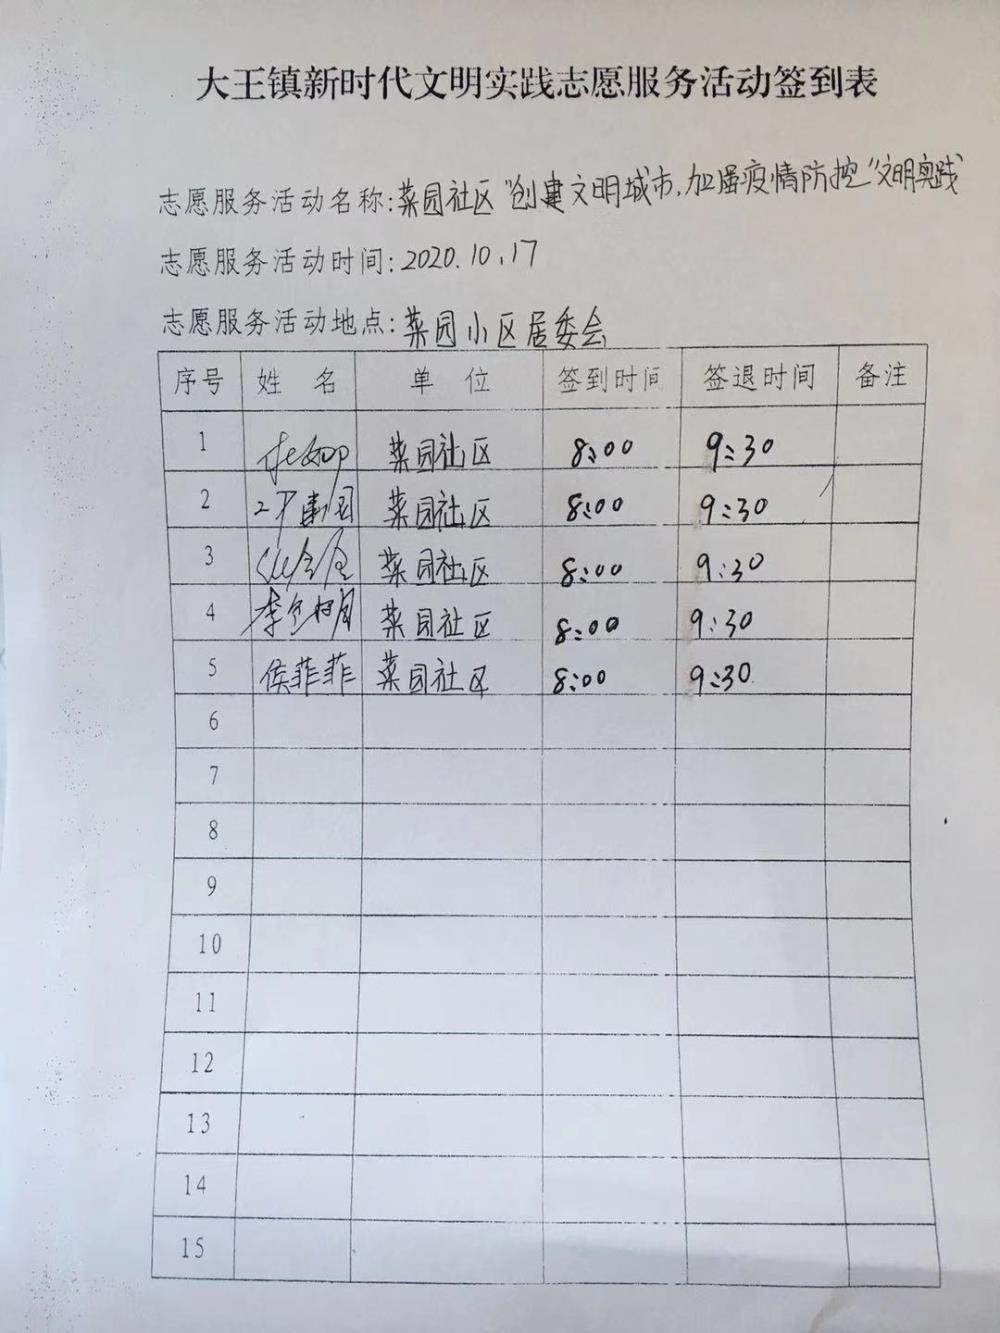 大王镇新时代文明实践志愿服务活动签到表
志愿服务活动名称:菜园社区"创建文明城市,加强疫情防控"文明实践
志愿服务活动时间:2020.10.17
志愿服务活动地点:菜园小区居委会
序号 姓 名 单 位 签到时间 签退时间 备注
1 菜园社区 8:00 9:30
2 菜园社区 8:00 9:30
3 菜园社区 8:00 9:30
4 菜园社区 8:00 9:30
5 侯菲菲 菜园社区 8:00 9:30
6
7
8
9
10
11
12
13
14
15